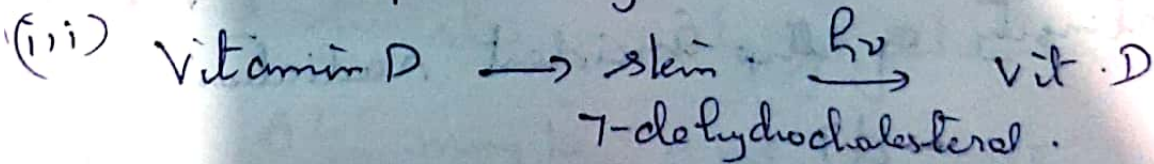 (iii) Vitamin D → skin. hν→ vit. D
7-dehydrocholesterol.